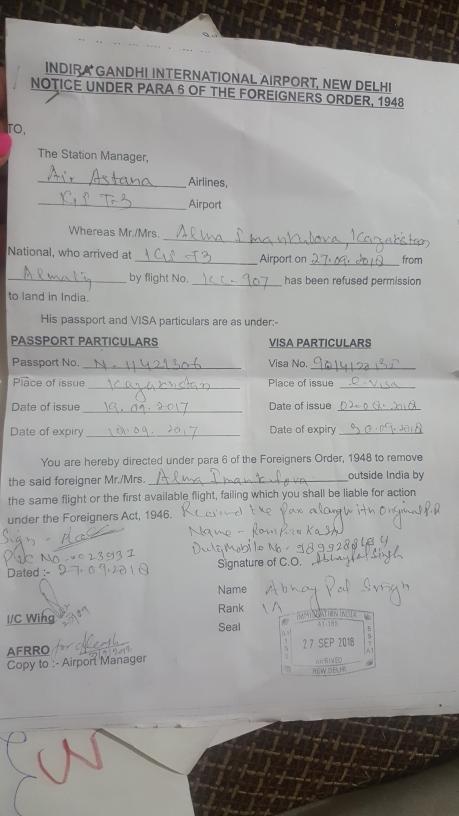 INDIRA GANDHI INTERNATIONAL AIRPORT, NEW DELHI
NOTICE UNDER PARA 6 OF THE FOREIGNERS ORDER, 1948
TO,
The Station Manager,
Air Astana Airlines,
T-3 Airport
Whereas Mr/Mrs. Alma Imankulova, Kazakstan
National, who arrived at IGI T3 Airport on 27.09.2018 from
Almaty by flight No. KC-907 has been refused permission
to land in India.
His passport and VISA particulars are as under:-
PASSPORT PARTICULARS
Passport No. N-11421306
Place of issue Kazakstan
Date of issue 19.09.2017
Date of expiry 2017
VISA PARTICULARS
Visa No.
Place of issue e-visa
Date of issue
Date of expiry 30.09.2018
You are hereby directed under para 6 of the Foreigners Order, 1948 to remove
the said foreigner Mr./Mrs. Alma Imankulova outside India by
the same flight or the first available flight, failing which you shall be liable for action
under the Foreigners Act, 1946. Received the Pax along with Original P.P
Sign -
Name -
No.
Duty Mobile No.
Dated :- 27.09.2018
Signature of C.O.
Name Abhay Pal Singh
Rank
Seal
I/C Wing
AFRRO for
Copy to :- Airport Manager
IMMIGRATION INDIA
27 SEP 2018
ARRIVED
NEW DELHI